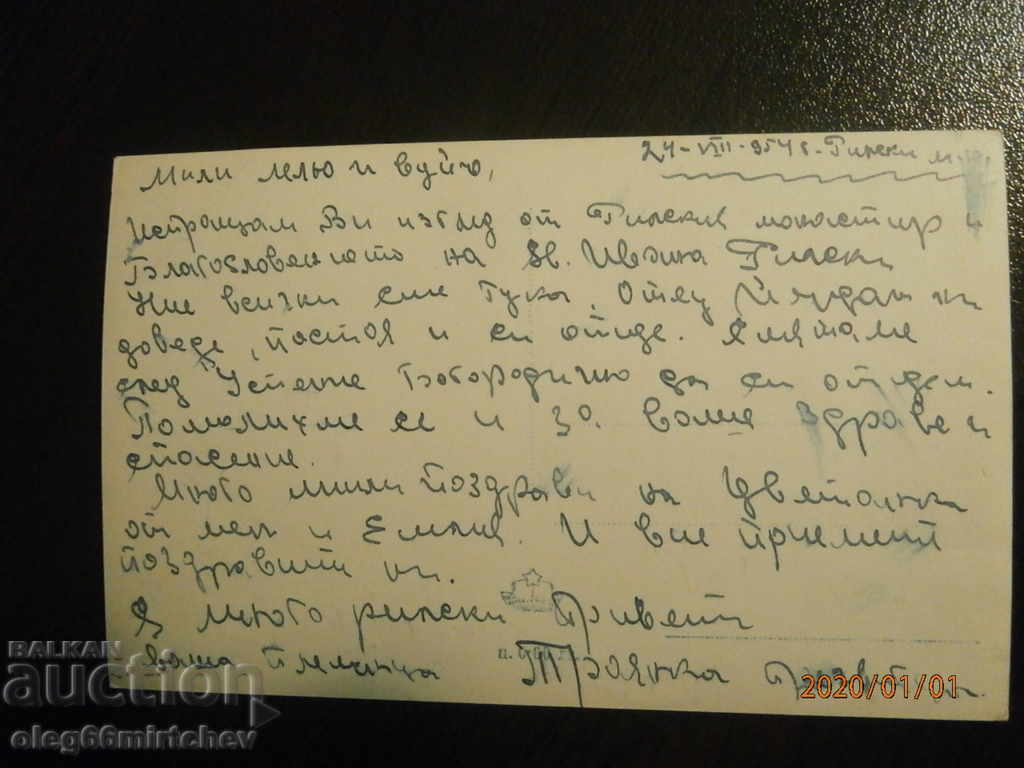 24-VIII-954 г. Рилски м.
Мили лельо и вуйчо,
Испращам Ви изглед от Рилския монастир и
Благословението на Св. Ивана Рилски
Ние всички сме тука. Отец Йордан ни
доведе, постоя и си отиде. Смятаме
след Успение Богородично да си отидем.
Помолихме се и за ваше здраве и
спасение.
Много мили поздрави на Цветанка
от мен и Емил. И вие приемете
поздравите ни.
С много рилски привети
ваша племенница Троянка
п.
BALKAN
auction
oleg66mirtchev
2020/01/01